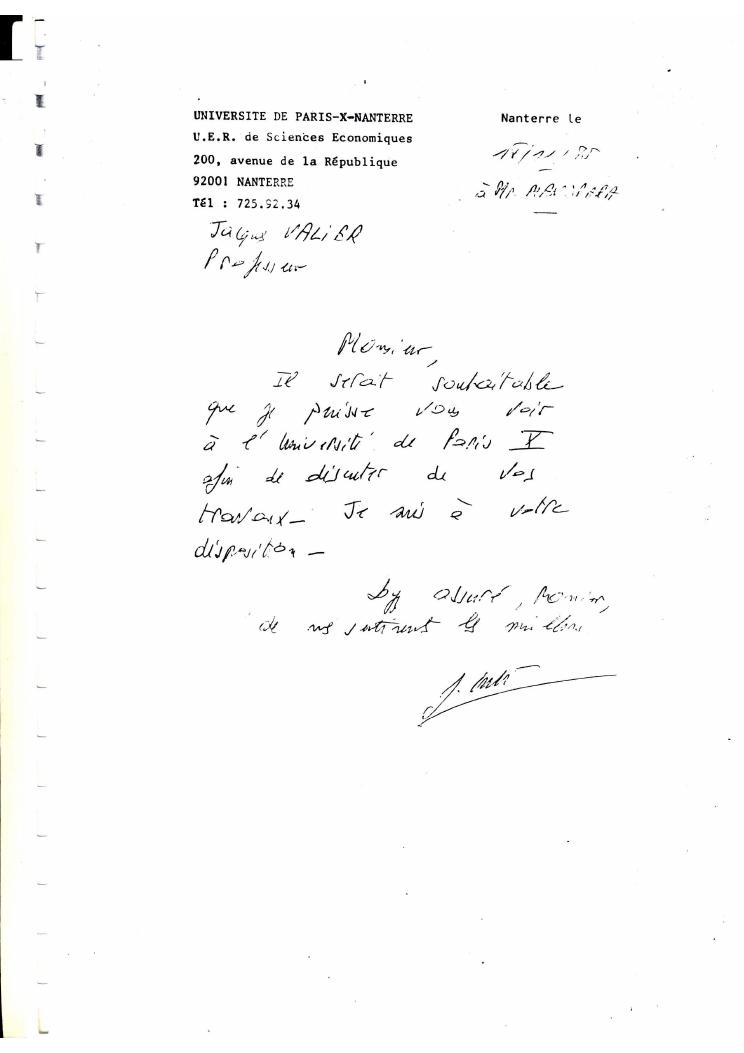 UNIVERSITE DE PARIS-X-NANTERRE
U.E.R. de Sciences Economiques
200, avenue de la République
92001 NANTERRE
Tél : 725.92.34
Nanterre le
à Mr
Jacques VALIER
Professeur
Monsieur,
Il serait souhaitable
que je puisse vous voir
à l'Université de Paris X
afin de discuter de vos
travaux_ Je suis à votre
disposition _
assuré, Monsieur,
de mes sentiments les meilleurs